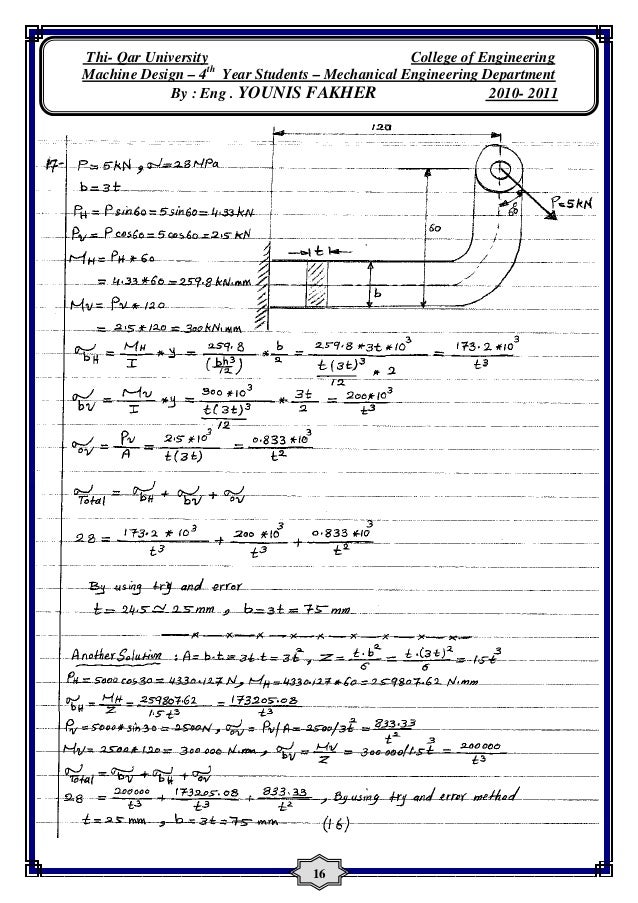 Thi- Qar University College of Engineering
Machine Design – 4th Year Students – Mechanical Engineering Department
By : Eng . YOUNIS FAKHER 2010- 2011
120
17- P=5kN, σ=28MPa
b=3t
P_H=P sin60=5sin60=4.33kN
P=5kN
60
P_V=P cos60=5cos60=2.5 kN
60
M_H=P_H*60
t
=4.33*60=259.8kN.mm
b
M_V=P_V*120
=2.5*120=300kN.mm
σ_bH = M_H/I * y = 259.8/(bh³/12) * b/2 = 259.8*3t*10³/(t(3t)³/12 * 2) = 173.2*10³/t³
σ_bV = M_V/I * y = 300*10³/(t(3t)³/12) * 3t/2 = 200*10³/t³
σ_oV = P_V/A = 2.5*10³/t(3t) = 0.833*10³/t²
σ_Total = σ_bH + σ_bV + σ_oV
28 = 173.2*10³/t³ + 200*10³/t³ + 0.833*10³/t²
By using try and error
t=24.5≃25mm, b=3t=75mm
—x—x—x—x—x—x—x—
Another Solution : A=b.t=3t.t=3t², Z=t.b²/6=t.(3t)²/6=1.5t³
P_H=5000cos30=4330.127N, M_H=4330.127*60=259807.62 N.mm
σ_bH=M_H/Z=259807.62/1.5t³=173205.08/t³
P_V=5000*sin30=2500N, σ_oV=P_V/A=2500/3t²=833.33/t²
M_V=2500*120=300000 N.mm, σ_bV=M_V/Z=300000/1.5t³=200000/t³
σ_Total=σ_bV+σ_bH+σ_oV
28 = 200000/t³ + 173205.08/t³ + 833.33/t², By using try and error method
t=25mm, b=3t=75mm (16)
16